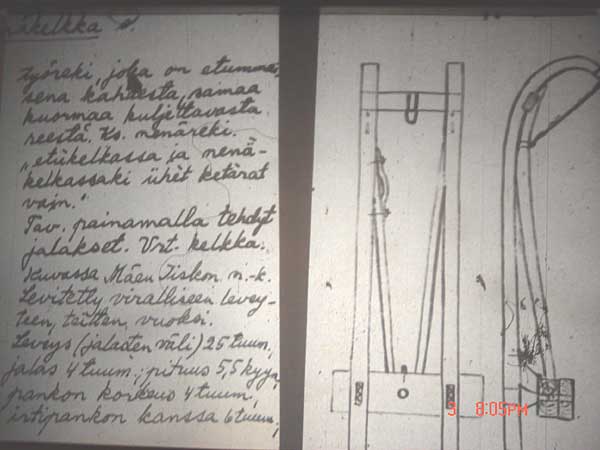 äkelkka s.
työreki, joka on etummai-
sena kahdesta, samaa
kuormaa kuljettavasta
reestä. Ks. nenäreki.
"etükelkassa ja nenä-
kelkassaki ühet ketärat
vain."
Tav. painamalla tehdyt
jalakset. Vrt. kelkka.
Kuvassa Mäen Iiskon n.-k.
Levitetty viralliseen levey-
teen, teitten, vuoksi.
Leveys (jaladen väli) 25 tuum.
jalas 4 tuum.; pituus 5,5 kyyn.
pankon korkeus 4 tuum,
irtipankon kanssa 6 tuum,
3 8:05PM